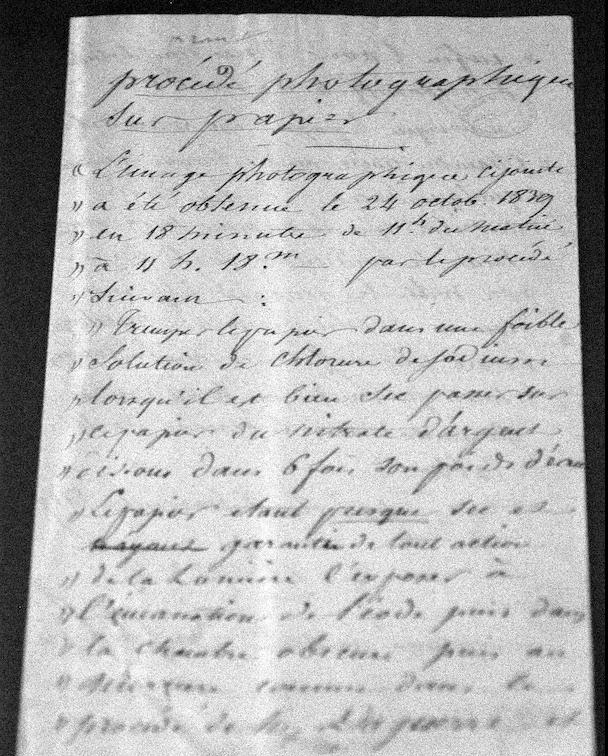 procédé photographique
sur papier
« L'image photographique cijointe
» a été obtenue le 24 octob. 1839
» en 18 minutes de 11.h du matin
» à 11 h. 18.m par le procédé
» Suivan :
» Tremper le papier dans une foible
» Solution de Chlorure de sodium
» lorsqu'il est bien sec passer sur
» ce papier du nitrate d'argent
» dissous dans 6 fois son poids d'eau
» Le papier étant presque sec et
garantie de tout action
» de la Lumière l'exposer à
» l'émanation de l'iode puis dans
» la chambre obscure puis au
» mercure comme dans le
» procédé de Mr. Daguerre et